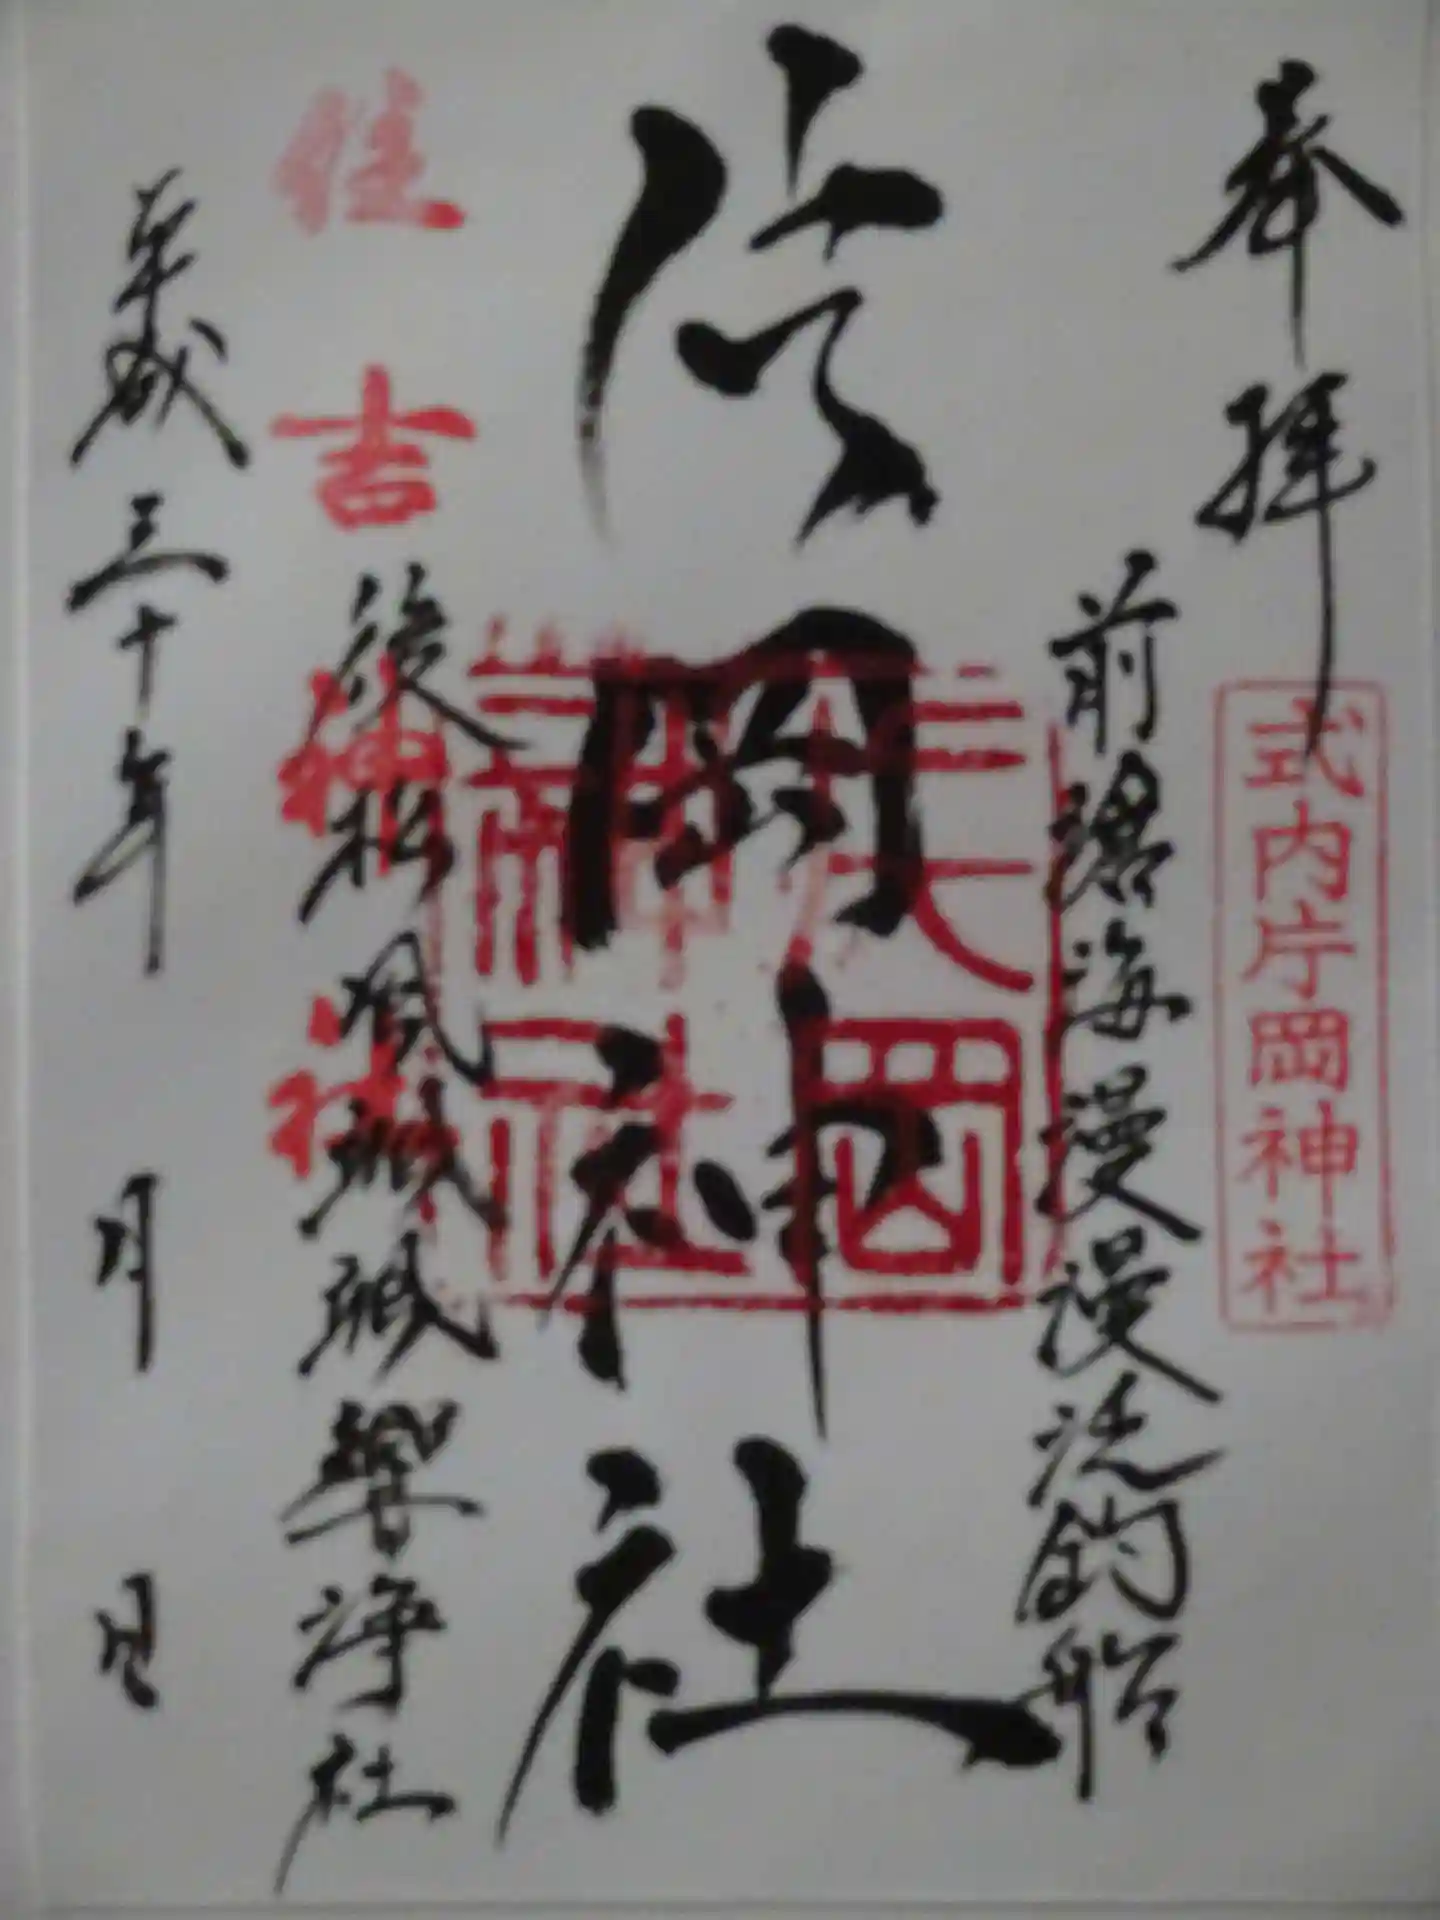 奉拝
式内片岡神社
前滄海漫漫泛釣船
岡神社
後松風颯颯響浄社
住吉神社
平成三十年 月 日